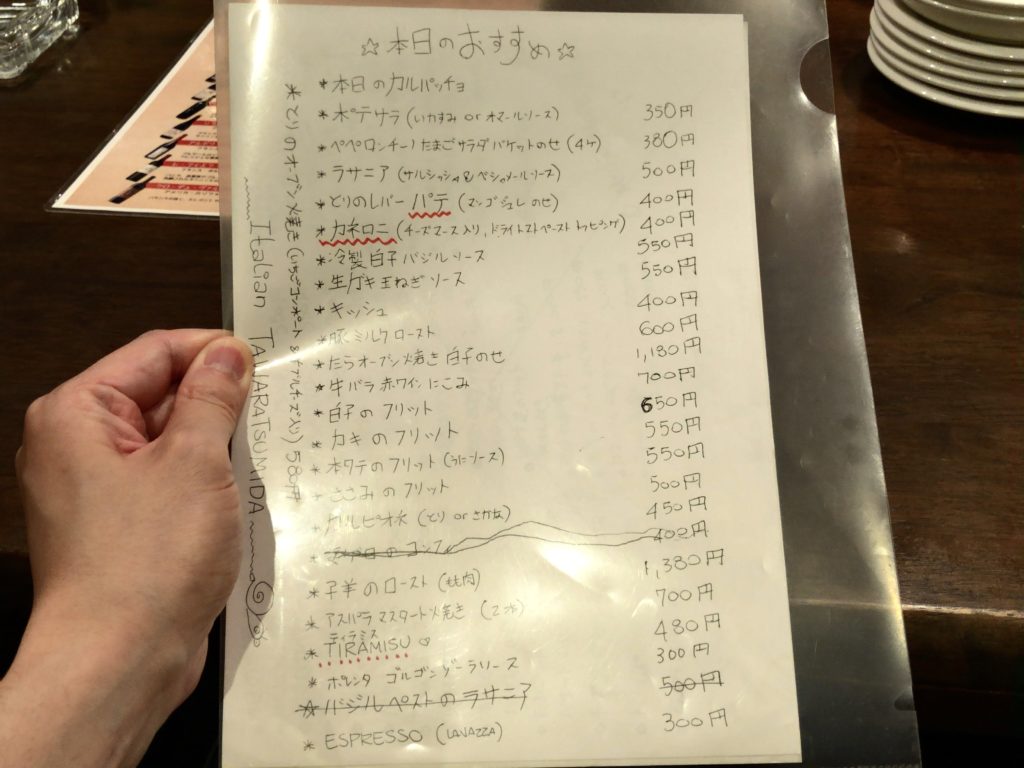 ☆本日のおすすめ☆
*本日のカルパッチョ
*ポテサラ(いかすみ or オマールソース) 350円
*ペペロンチーノたまごサラダバケットのせ(4ケ) 380円
*ラサニア(サルシッシャ&ベシャメールソース) 500円
*とりのレバーパテ(マンゴジュレのせ) 400円
*カネロニ(チーズムース入り、ドライトマトペーストトッピング) 400円
*冷製白子バジルソース 550円
*生ガキ玉ねぎソース 550円
*キッシュ 400円
*豚ミルクロースト 600円
*たらオーブン焼き白子のせ 1,180円
*牛バラ赤ワインにこみ 700円
*白子のフリット 650円
*カキのフリット 550円
*ホタテのフリット(うにソース) 550円
*ささみのフリット 500円
(とり or さかな) 450円
のコンフィ 400円
*子羊のロースト(もも肉) 1,380円
*アスパラマスタード焼き(2本) 700円
ティラミス
*TIRAMISU♡ 480円
*ポレンタ ゴルゴンゾーラソース 300円
☆バジルペストのラサニア 500円
*ESPRESSO(LAVAZZA) 300円
*とりのオーブン焼き(いちごコンポート&チーズ入り) 580円
Italian TAWARATSUMIDA